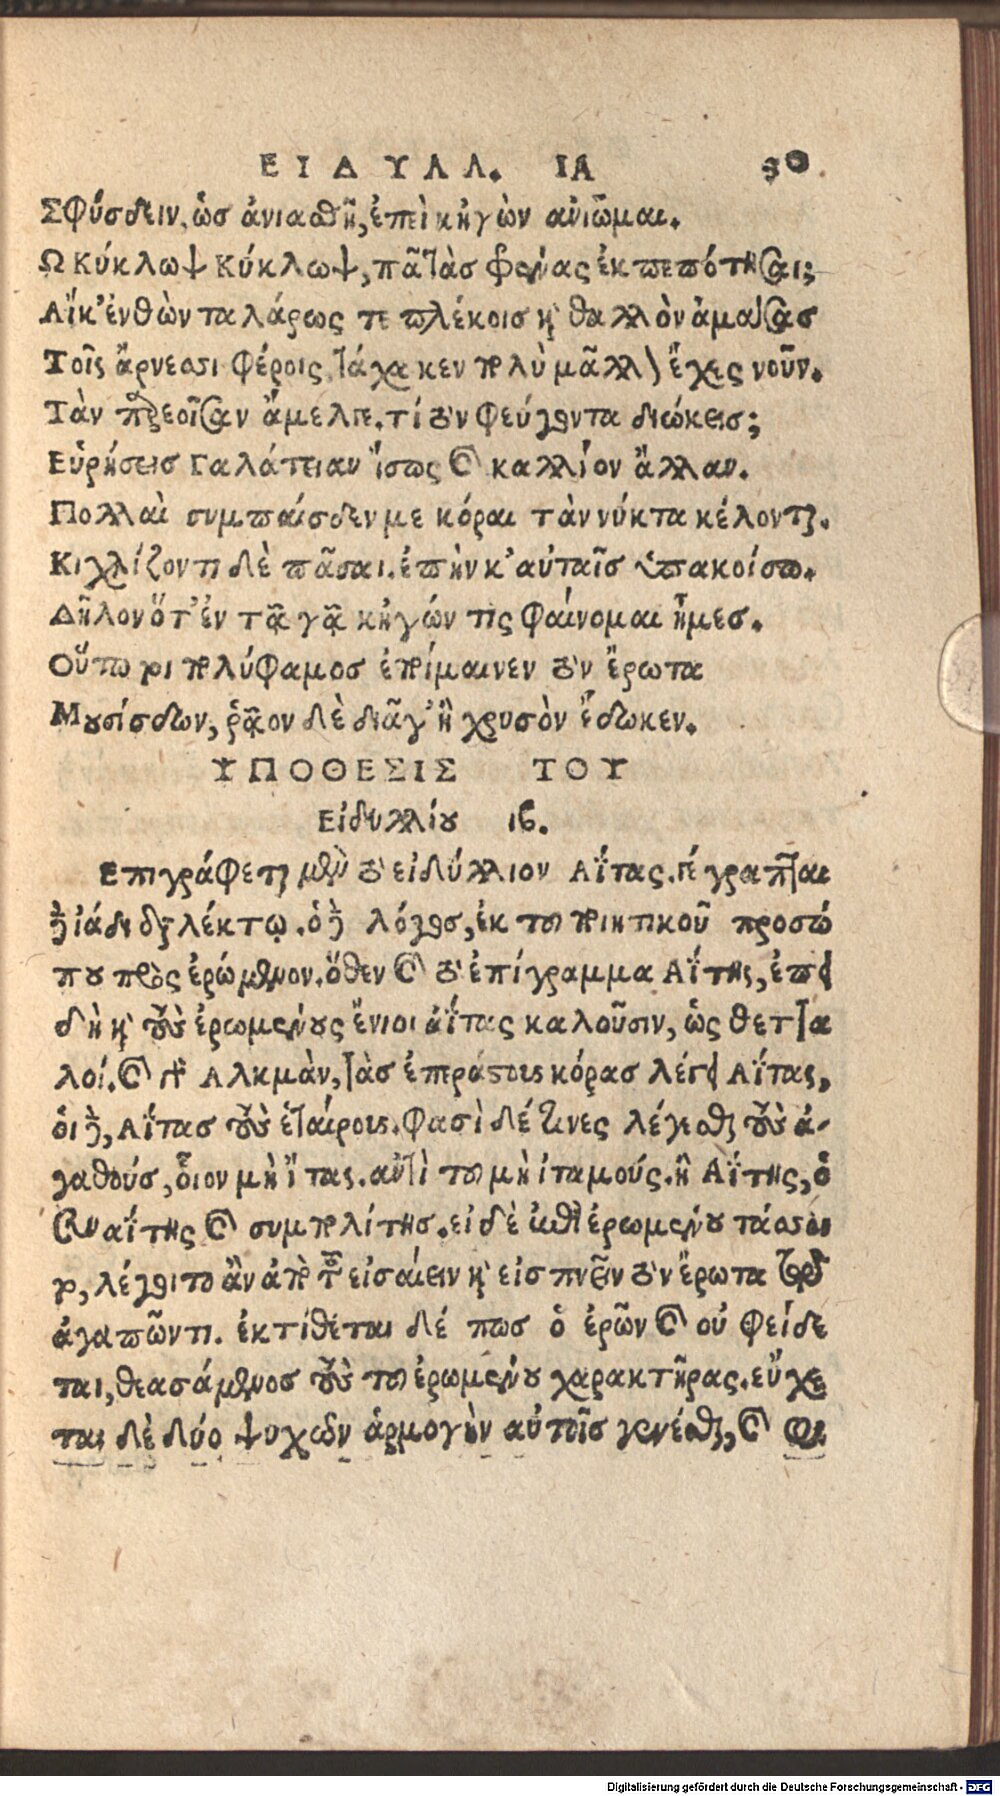 ΕΙΔΥΛΛ. ΙΑ 30
Σφύσδειν, ὡσ ἀνιαθῇ, ἐπεὶ κἠγὼν ἀνιῶμαι.
Ω Κύκλωψ Κύκλωψ, πᾶ τὰσ φρένας ἐκπεπότησαι;
Αἴκ' ἐνθὼν ταλάρως τε πλέκοισ καὶ θαλλὸν ἀμάσας
Τοῖς ἄρνεσσι φέροις, τάχα κεν πολὺ μᾶλλον ἔχες νοῦν.
Τὰν παρεοῖσαν ἄμελγε. τί τὸν φεύγοντα διώκεισ;
Εὑρήσεισ Γαλάτειαν ἴσως καὶ καλλίον' ἄλλαν.
Πολλαὶ συμπαίσδεν με κόραι τὰν νύκτα κέλονται.
Κιχλίζοντι δὲ πᾶσαι. ἐπὴν κ' αὐταῖσ ὑπακοίσω.
Δῆλον ὅτ' ἐν τᾷ γᾷ κἠγών τις φαίνομαι ἦμεσ.
Οὕτω τοι πολύφαμοσ ἐποίμαινεν τὸν ἔρωτα
Μουσίσδων, ῥᾷον δὲ διᾶγ' ἢ χρυσὸν ἔδωκεν.
ΥΠΟΘΕΣΙΣ ΤΟΥ
Εἰδυλλίου ιβ.
Επιγράφεται μὲν τὸ εἰδύλλιον Αΐτας. γέγραπται
δὲ ἰάδι διαλέκτῳ. ὁ δὲ λόγοσ, ἐκ τοῦ ποιητικοῦ προσώ
που πρὸς ἐρώμενον. ὅθεν καὶ τὸ ἐπίγραμμα Αΐτης, ἐπει
δὴ καὶ τοὺς ἐρωμένους ἔνιοι ἀΐτας καλοῦσιν, ὡς θεττα
λοί. καὶ Αλκμὰν, τὰσ ἐπεράστους κόρασ λέγει Αΐτας,
οἱ δὲ, Αΐτασ τοὺς ἑταίρους. Φασὶ δέ τινες λέγεσθαι τοὺς ἀ-
γαθούσ, οἷον μὴ ἴτας. ἀντὶ τοῦ μὴ ἰταμούς. ἢ Αΐτης, ὁ
συναΐτης καὶ συμπολίτησ. εἰ δὲ ἐπὶ ἐρωμένου τάσσοι
το, λέγοιτο ἂν ἀπὸ τοῦ εἰσαίειν καὶ εἰσπνεῖν τὸν ἔρωτα τῷ
ἀγαπῶντι. ἐκτίθεται δέ πωσ ὁ ἐρῶν καὶ οὐ φείδε
ται, θεασάμενοσ τοὺς τοῦ ἐρωμένου χαρακτῆρας. εὔχε
ται δὲ δύο ψυχῶν ἁρμογὴν αὐτοῖσ γενέσθαι, καὶ
Digitalisierung gefördert durch die Deutsche Forschungsgemeinschaft - DFG